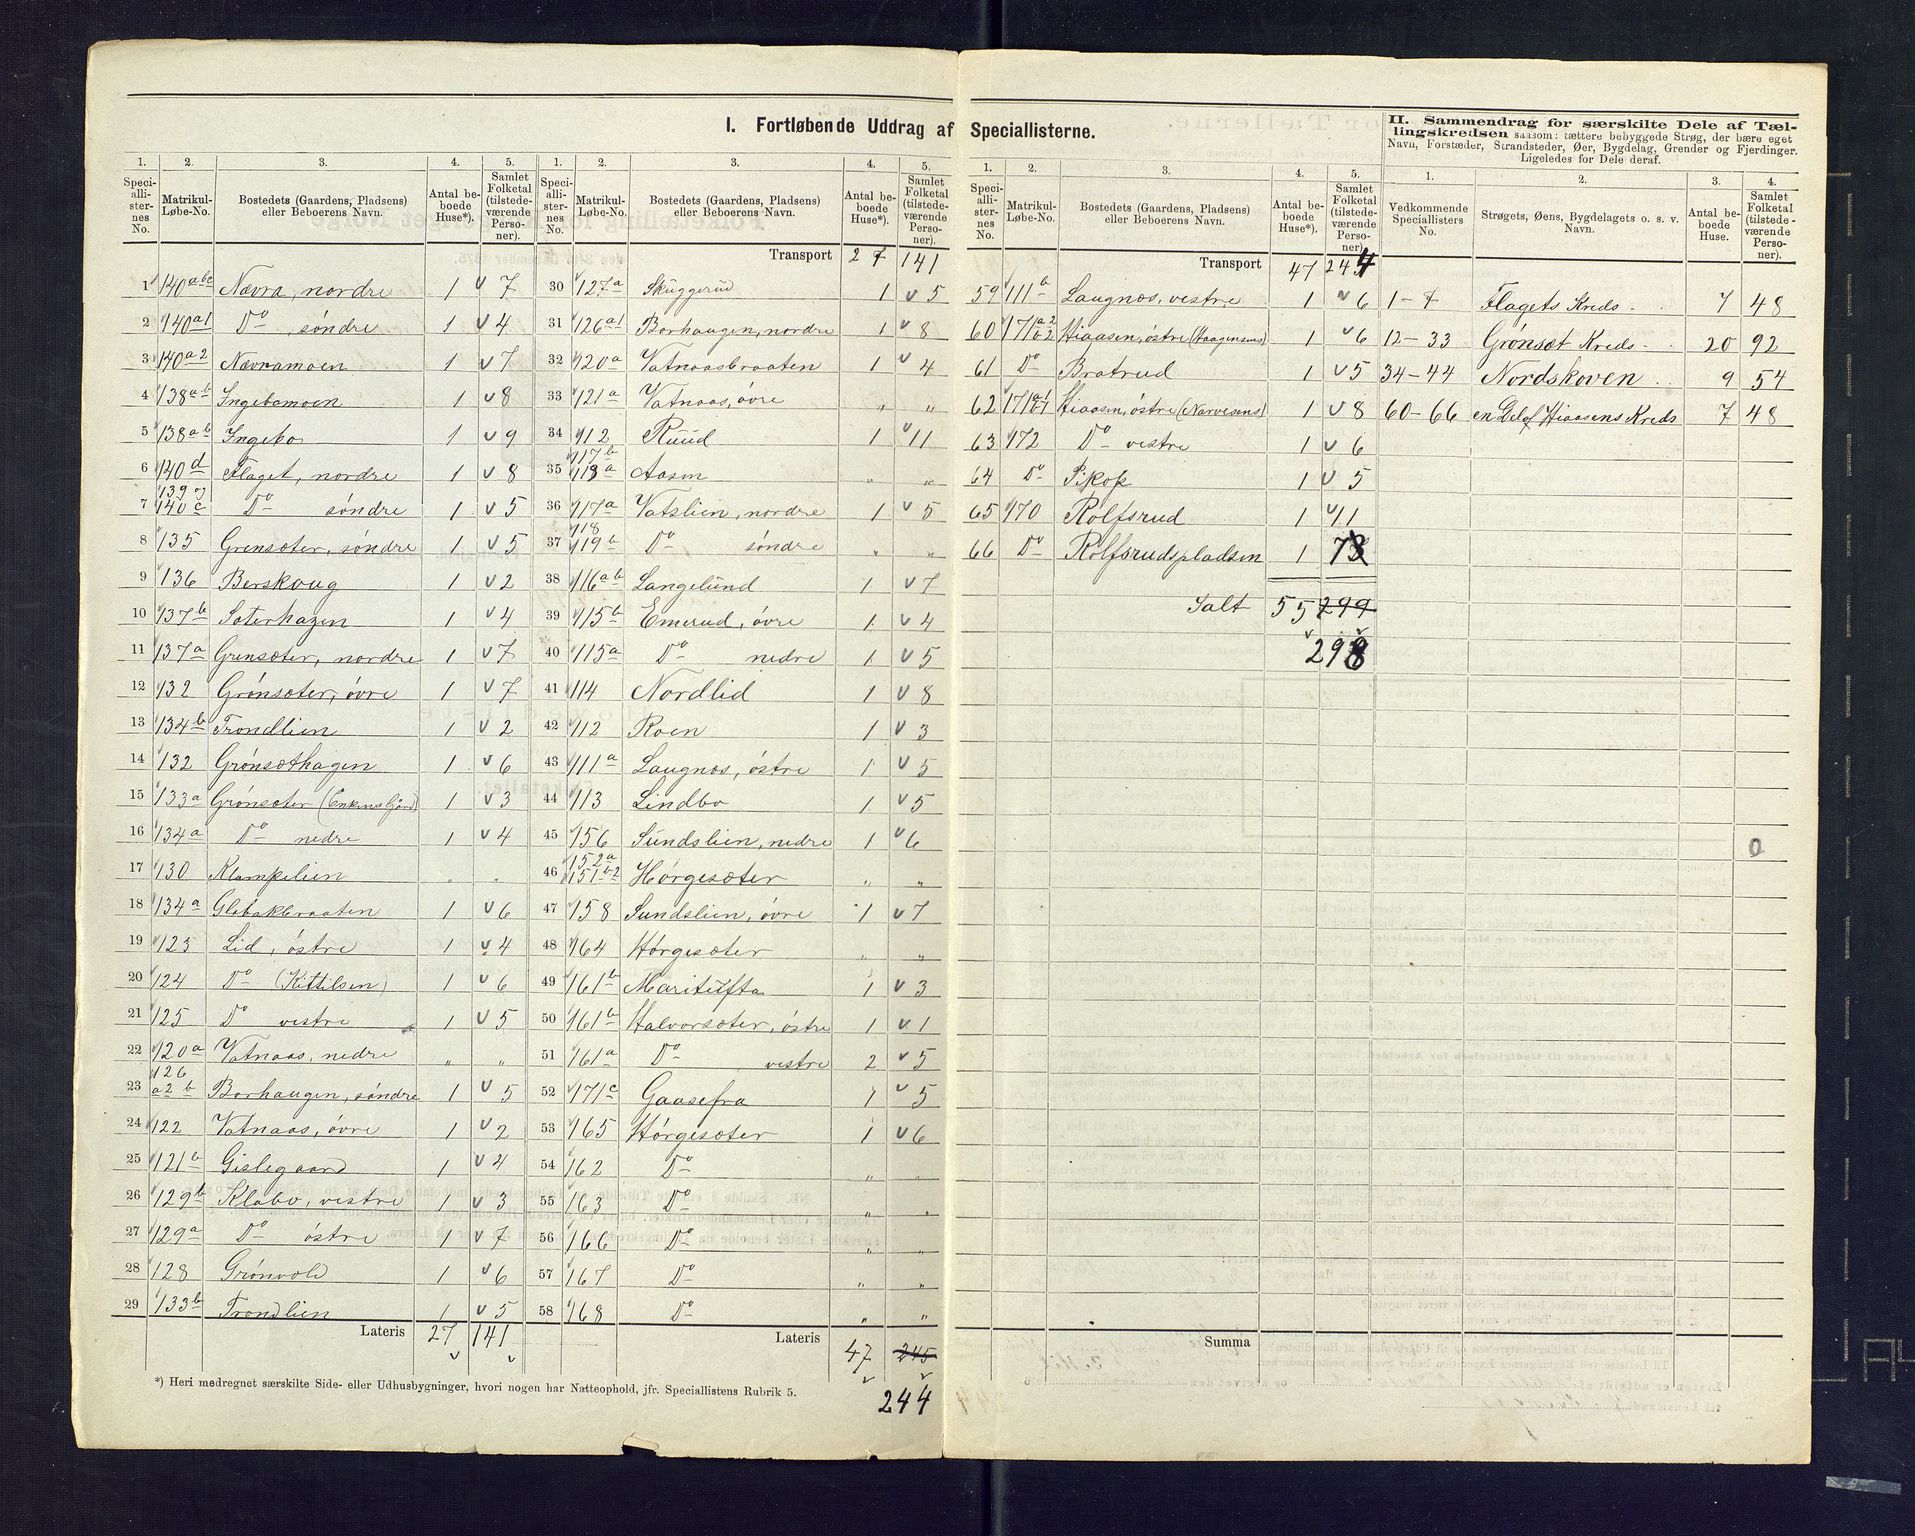 I. Fortløbende Uddrag af Speciallisterne.
1. 2. 3. 4. 5.
Speciallisternes No. Matrikul-Løbe-No. Bostedets (Gaardens, Pladsens) eller Beboerens Navn. Antal beboede Huse*). Samlet Folketal (tilstedeværende Personer).
1 140abc Nævra, nordre 1 7
2 140a1 Do, søndre 1 4
3 140a2 Nævramoen 1 7
4 138ab Ingebomoen 1 8
5 138ab Ingebo 1 9
6 140d Flaget, nordre 1 8
7 139 og 140c Do søndre 1 5
8 135 Grensæter, søndre 1 5
9 136 Berskoug 1 2
10 137b Sæterhagen 1 4
11 137a Grensæter, nordre 1 7
12 132 Grønsæter, øvre 1 7
13 134b Trondlien 1 2
14 132 Grønsæthagen 1 6
15 133a Grønsæter (Enkens Gård) 1 3
16 134a Do nedre 1 4
17 130 Klampelien „ .
18 134a Glabakbraaten 1 6
19 123 Lid, østre 1 4
20 124 Do (Kittilsen) 1 6
21 125 Do vestre 1 5
22 120a Vatnaas, nedre „ „
23 126 a2 b Borhaugen, søndre 1 5
24 122 Vatnaas, øvre 1 2
25 121b Gislegaard 1 4
26 129b Kløbo, vestre 1 3
27 129a Do østre 1 7
28 128 Grønvold 1 6
29 133b Trondlien 1 5
Lateris 27 141
*) Heri medregnet særskilte Side- eller Udhusbygninger, hvori nogen har Natteophold, jfr. Speciallistens Rubrik 5.
1. 2. 3. 4. 5.
Speciallisternes No. Matrikul-Løbe-No. Bostedets (Gaardens, Pladsens) eller Beboerens Navn. Antal beboede Huse*). Samlet Folketal (tilstedeværende Personer).
Transport 27 141
30 127a Skuggerud 1 5
31 126a1 Borhaugen, nordre 1 8
32 120a Vatnaasbraaten 1 4
33 121a Vatnaas, øvre „ „
34 112 Ruud 1 11
35 117b 113a Aasen „ „
36 117a Vatslien, nordre 1 5
37 118 119b Do søndre „ „
38 116ab Langelund 1 7
39 115b Emerud, øvre 1 4
40 115a Do nedre 1 5
41 114 Nordlid 1 8
42 112 Roen 1 3
43 111a Laugnæs, østre 1 5
44 113 Lindbo 1 5
45 156 Sundslien, nedre 1 6
46 152a 151b2 Hørgesæter „ „
47 158 Sundslien, øvre 1 7
48 164 Hørgesæter „ „
49 161b Maritufta 1 3
50 161b Halvorsæter, østre 1 1
51 161a Do vestre 2 5
52 171c Gaasefra 1 5
53 165 Hørgesæter 1 6
54 162 Do „ „
55 163 Do „ „
56 166 Do „ „
57 167 Do „ „
58 168 Do „ „
Lateris 47 245
244
1. 2. 3. 4. 5.
Speciallisternes No. Matrikul-Løbe-No. Bostedets (Gaardens, Pladsens) eller Beboerens Navn. Antal beboede Huse*). Samlet Folketal (tilstedeværende Personer).
Transport 47 244
59 111a Laugnæs, vestre 1 6
60 171a2 b2 Hiaasen, østre (Haagensens) 1 6
61 Do Bratrud 1 5
62 171a1 b1 Hiaasen, østre (Narvesens) 1 8
63 172 Do vestre 1 6
64 Do Pikop 1 5
65 170 Rolfsrud 1 11
66 Do Rolfsrudspladsen 1 7
Ialt 55 299
298
Summa
II. Sammendrag for særskilte Dele af Tællingskredsen saasom: tættere bebyggede Strøg, der bære eget Navn, Forstæder, Strandsteder, Øer, Bygdelag, Grender og Fjerdinger. Ligeledes for Dele deraf.
1. 2. 3. 4.
Vedkommende Speciallisters No. Strøgets, Øens, Bygdelagets o. s. v. Navn. Antal beboede Huse. Samlet Folketal (tilstedeværende Personer).
1-7 Flagets Kreds. 7 48
12-33 Grønsæt Kreds. 20 92
34-44 Nordskoven. 9 54
60-66 en Del af Hiaasens Kreds 7 48
0